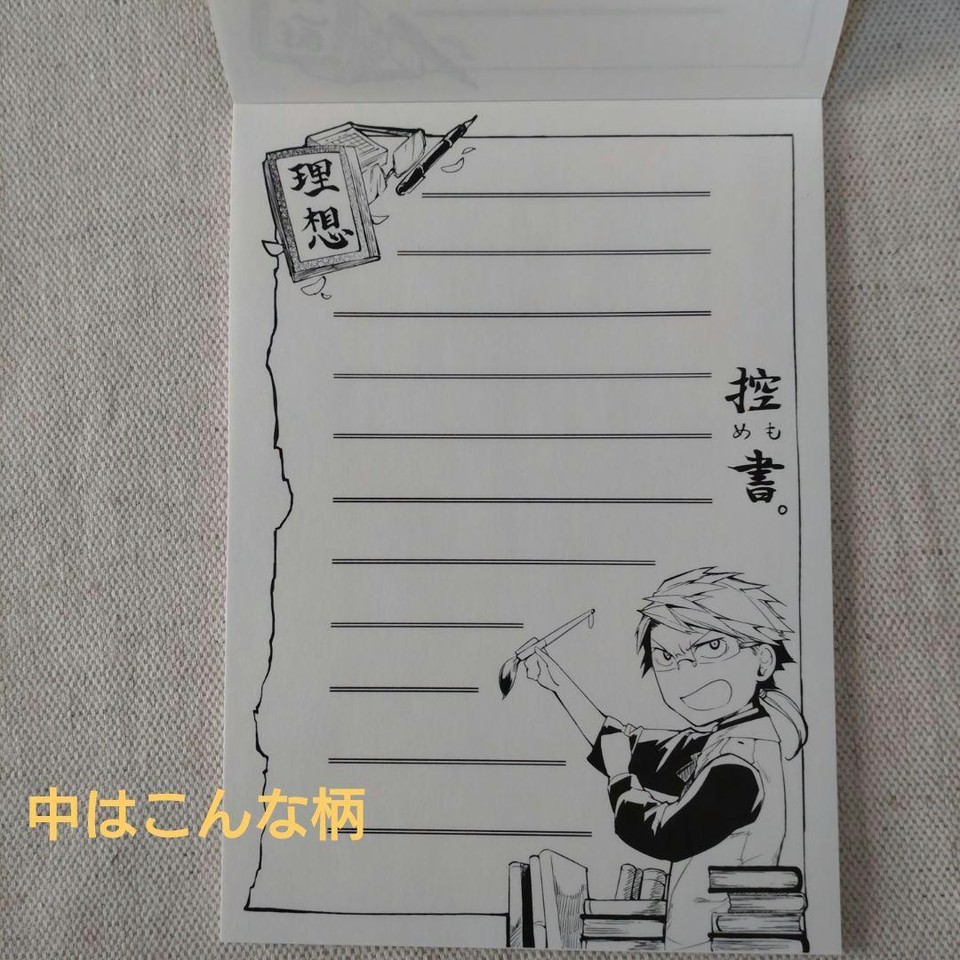 理想
控書。
めも
中はこんな柄